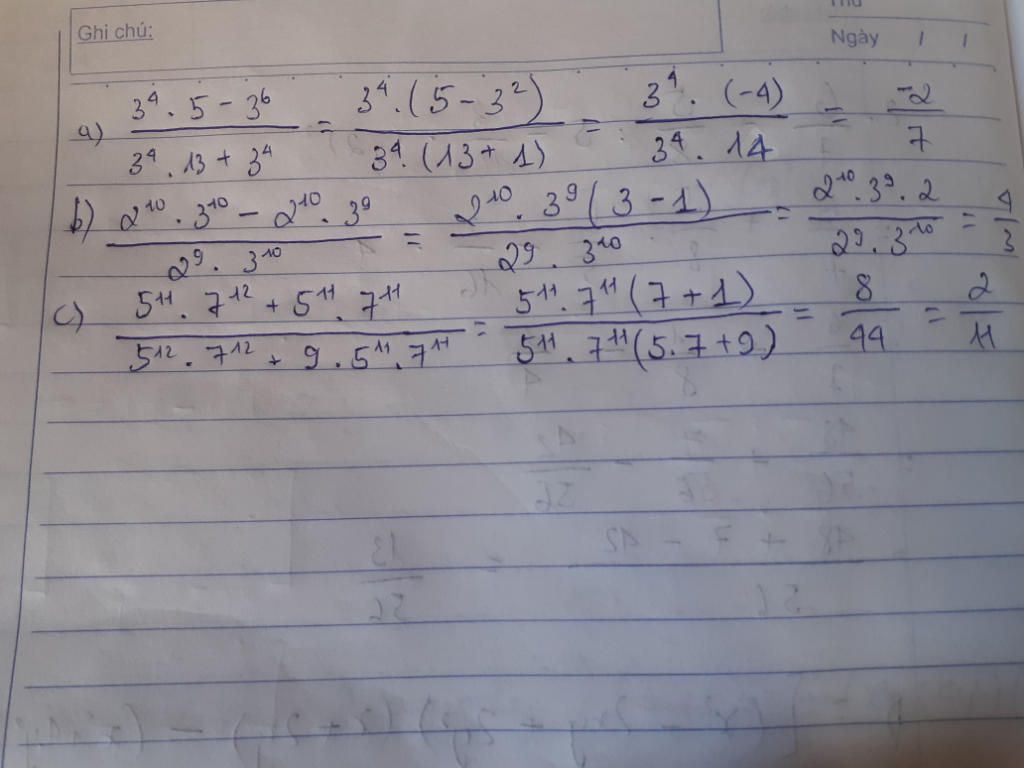 Ghi chú:
Ngày / /
a) \frac{3^4 . 5 - 3^6}{3^4 . 13 + 3^4} = \frac{3^4 . (5 - 3^2)}{3^4 . (13 + 1)} = \frac{3^4 . (-4)}{3^4 . 14} = \frac{-2}{7}
b) \frac{2^{10} . 3^{10} - 2^{10} . 3^9}{2^9 . 3^{10}} = \frac{2^{10} . 3^9 (3 - 1)}{2^9 . 3^{10}} = \frac{2^{10} . 3^9 . 2}{2^9 . 3^{10}} = \frac{4}{3}
c) \frac{5^{11} . 7^{12} + 5^{11} . 7^{11}}{5^{12} . 7^{12} + 9 . 5^{11} . 7^{11}} = \frac{5^{11} . 7^{11} (7 + 1)}{5^{11} . 7^{11} (5 . 7 + 9)} = \frac{8}{44} = \frac{2}{11}